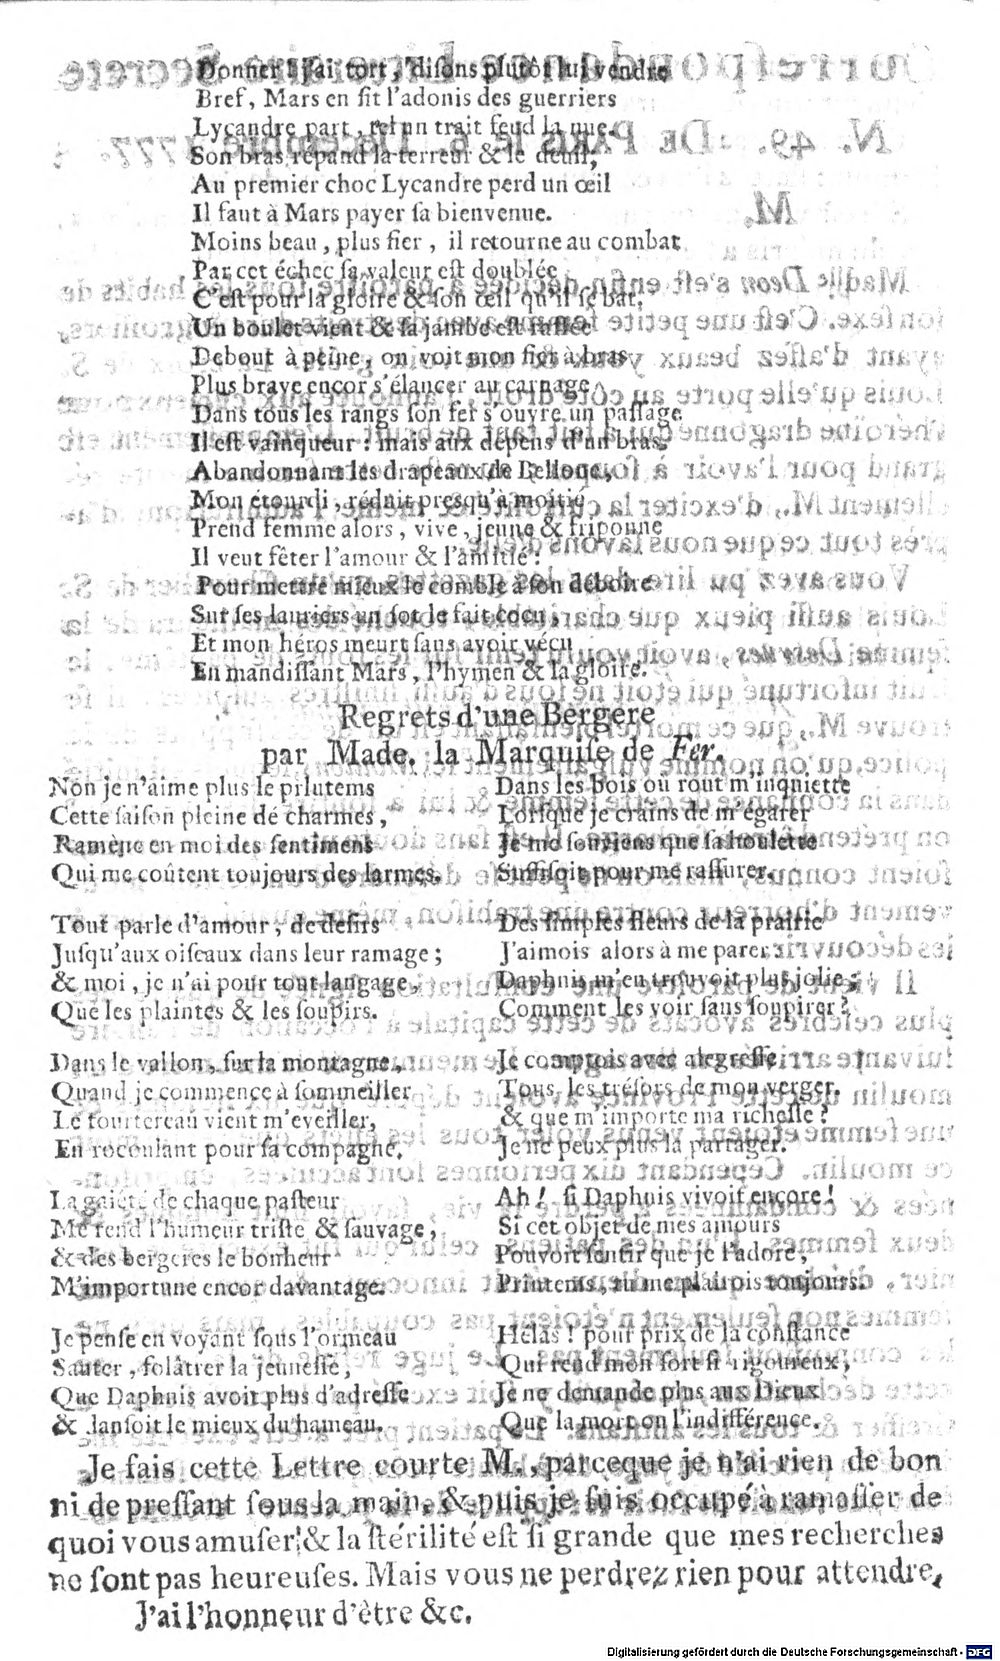 Donner ! j'ai tort, disons plutôt lui vendre
Bref, Mars en fit l'adonis des guerriers
Lycandre part, tel un trait fend la nue.
Son bras répand la terreur & le deuil;
Au premier choc Lycandre perd un œil
Il faut à Mars payer sa bienvenue.
Moins beau, plus fier, il retourne au combat
Par cet échec sa valeur est doublée
C'est pour la gloire & son œil qu'il se bat.
Un boulet vient & sa jambe est raflée
Debout à peine, on voit mon fier à bras
Plus brave encor s'élancer au carnage
Dans tous les rangs son fer s'ouvre un passage
Il est vainqueur : mais aux dépens d'un bras.
Abandonnant les drapeaux de Bellone,
Mon étourdi, réduit presqu'à moitié
Prend femme alors, vive, jeune & friponne
Il veut fêter l'amour & l'amitié :
Pour mettre mieux le comble à son déboire
Sur ses lauriers un sot le fait cocu,
Et mon héros meurt sans avoir vécu
En maudissant Mars, l'hymen & la gloire.
Regrets d'une Bergere
par Made. la Marquise de Fer.
Non je n'aime plus le printems
Cette saison pleine de charmes,
Ramène en moi des sentimens
Qui me coûtent toujours des larmes.
Tout parle d'amour, de desirs
Jusqu'aux oiseaux dans leur ramage;
& moi, je n'ai pour tout langage,
Que les plaintes & les soupirs.
Dans le vallon, sur la montagne,
Quand je commence à sommeiller
Le tourtereau vient m'eveiller,
En roucoulant pour sa compagne.
La gaiété de chaque pasteur
Me rend l'humeur triste & sauvage,
& des bergeres le bonheur
M'importune encor davantage.
Je pense en voyant sous l'ormeau
Sauter, folâtrer la jeunesse,
Que Daphnis avoit plus d'adresse
& dansoit le mieux du hameau.
Dans les bois où tout m'inquiette
Lorsque je crains de m'égarer
Je me souviens que sa houlette
Suffisoit pour me rassurer.
Des simples fleurs de la prairie
J'aimois alors à me parer:
Daphnis m'en trouvoit plus jolie;
Comment les voir sans soupirer?
Je comptois avec alegresse,
Tous les trésors de mon verger.
& que m'importe ma richesse?
Je ne peux plus la partager.
Ah! si Daphnis vivoit encore!
Si cet objet de mes amours
Pouvoit sentir que je l'adore,
Printems, tu me plairois toujours.
Hélas! pour prix de la constance
Qui rend mon sort si rigoureux,
Je ne demande plus aux Dieux
Que la mort ou l'indifférence.
Je fais cette Lettre courte M., parceque je n'ai rien de bon
ni de pressant sous la main, & puis je suis occupé à ramasser de
quoi vous amuser! & la stérilité est si grande que mes recherches
ne sont pas heureuses. Mais vous ne perdrez rien pour attendre,
J'ai l'honneur d'être &c.
Digitalisierung gefördert durch die Deutsche Forschungsgemeinschaft - DFG